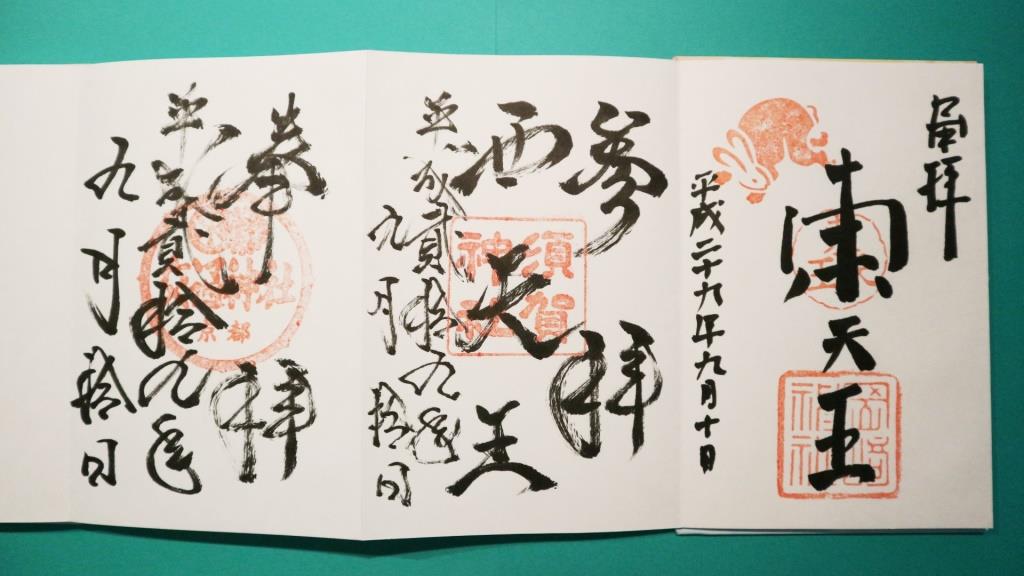 奉拝
東天王
岡崎
神社
平成二十九年九月十日
参拝
西天王
須賀
神社
平成貳拾九年
九月拾日
奉拝
神社
京都
平成貳拾九年
九月拾日